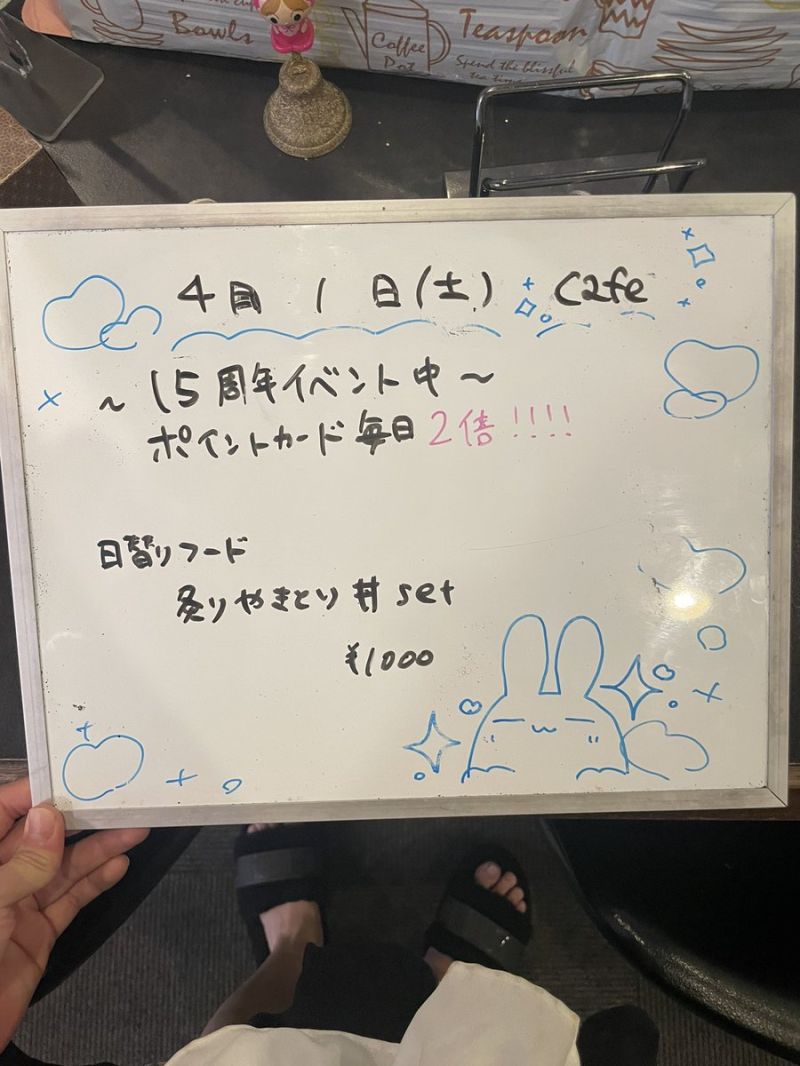 Bowls
Coffee
Pot
Teaspoon
Spend the blissful
tea time
4月 1日(土) Cafe
~15周年イベント中~
ポイントカード毎日2倍!!!!
日替りフード
炙りやきとり丼set
¥1000